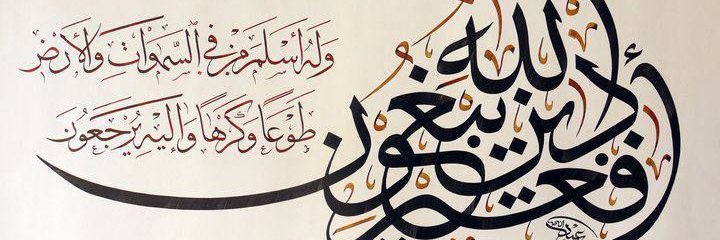 أفغير دين الله يبغون
وَلَهُ أَسْلَمَ مَنْ فِي السَّمٰوَاتِ وَالْأَرْضِ
طَوْعًا وَكَرْهًا وَإِلَيْهِ يُرْجَعُونَ